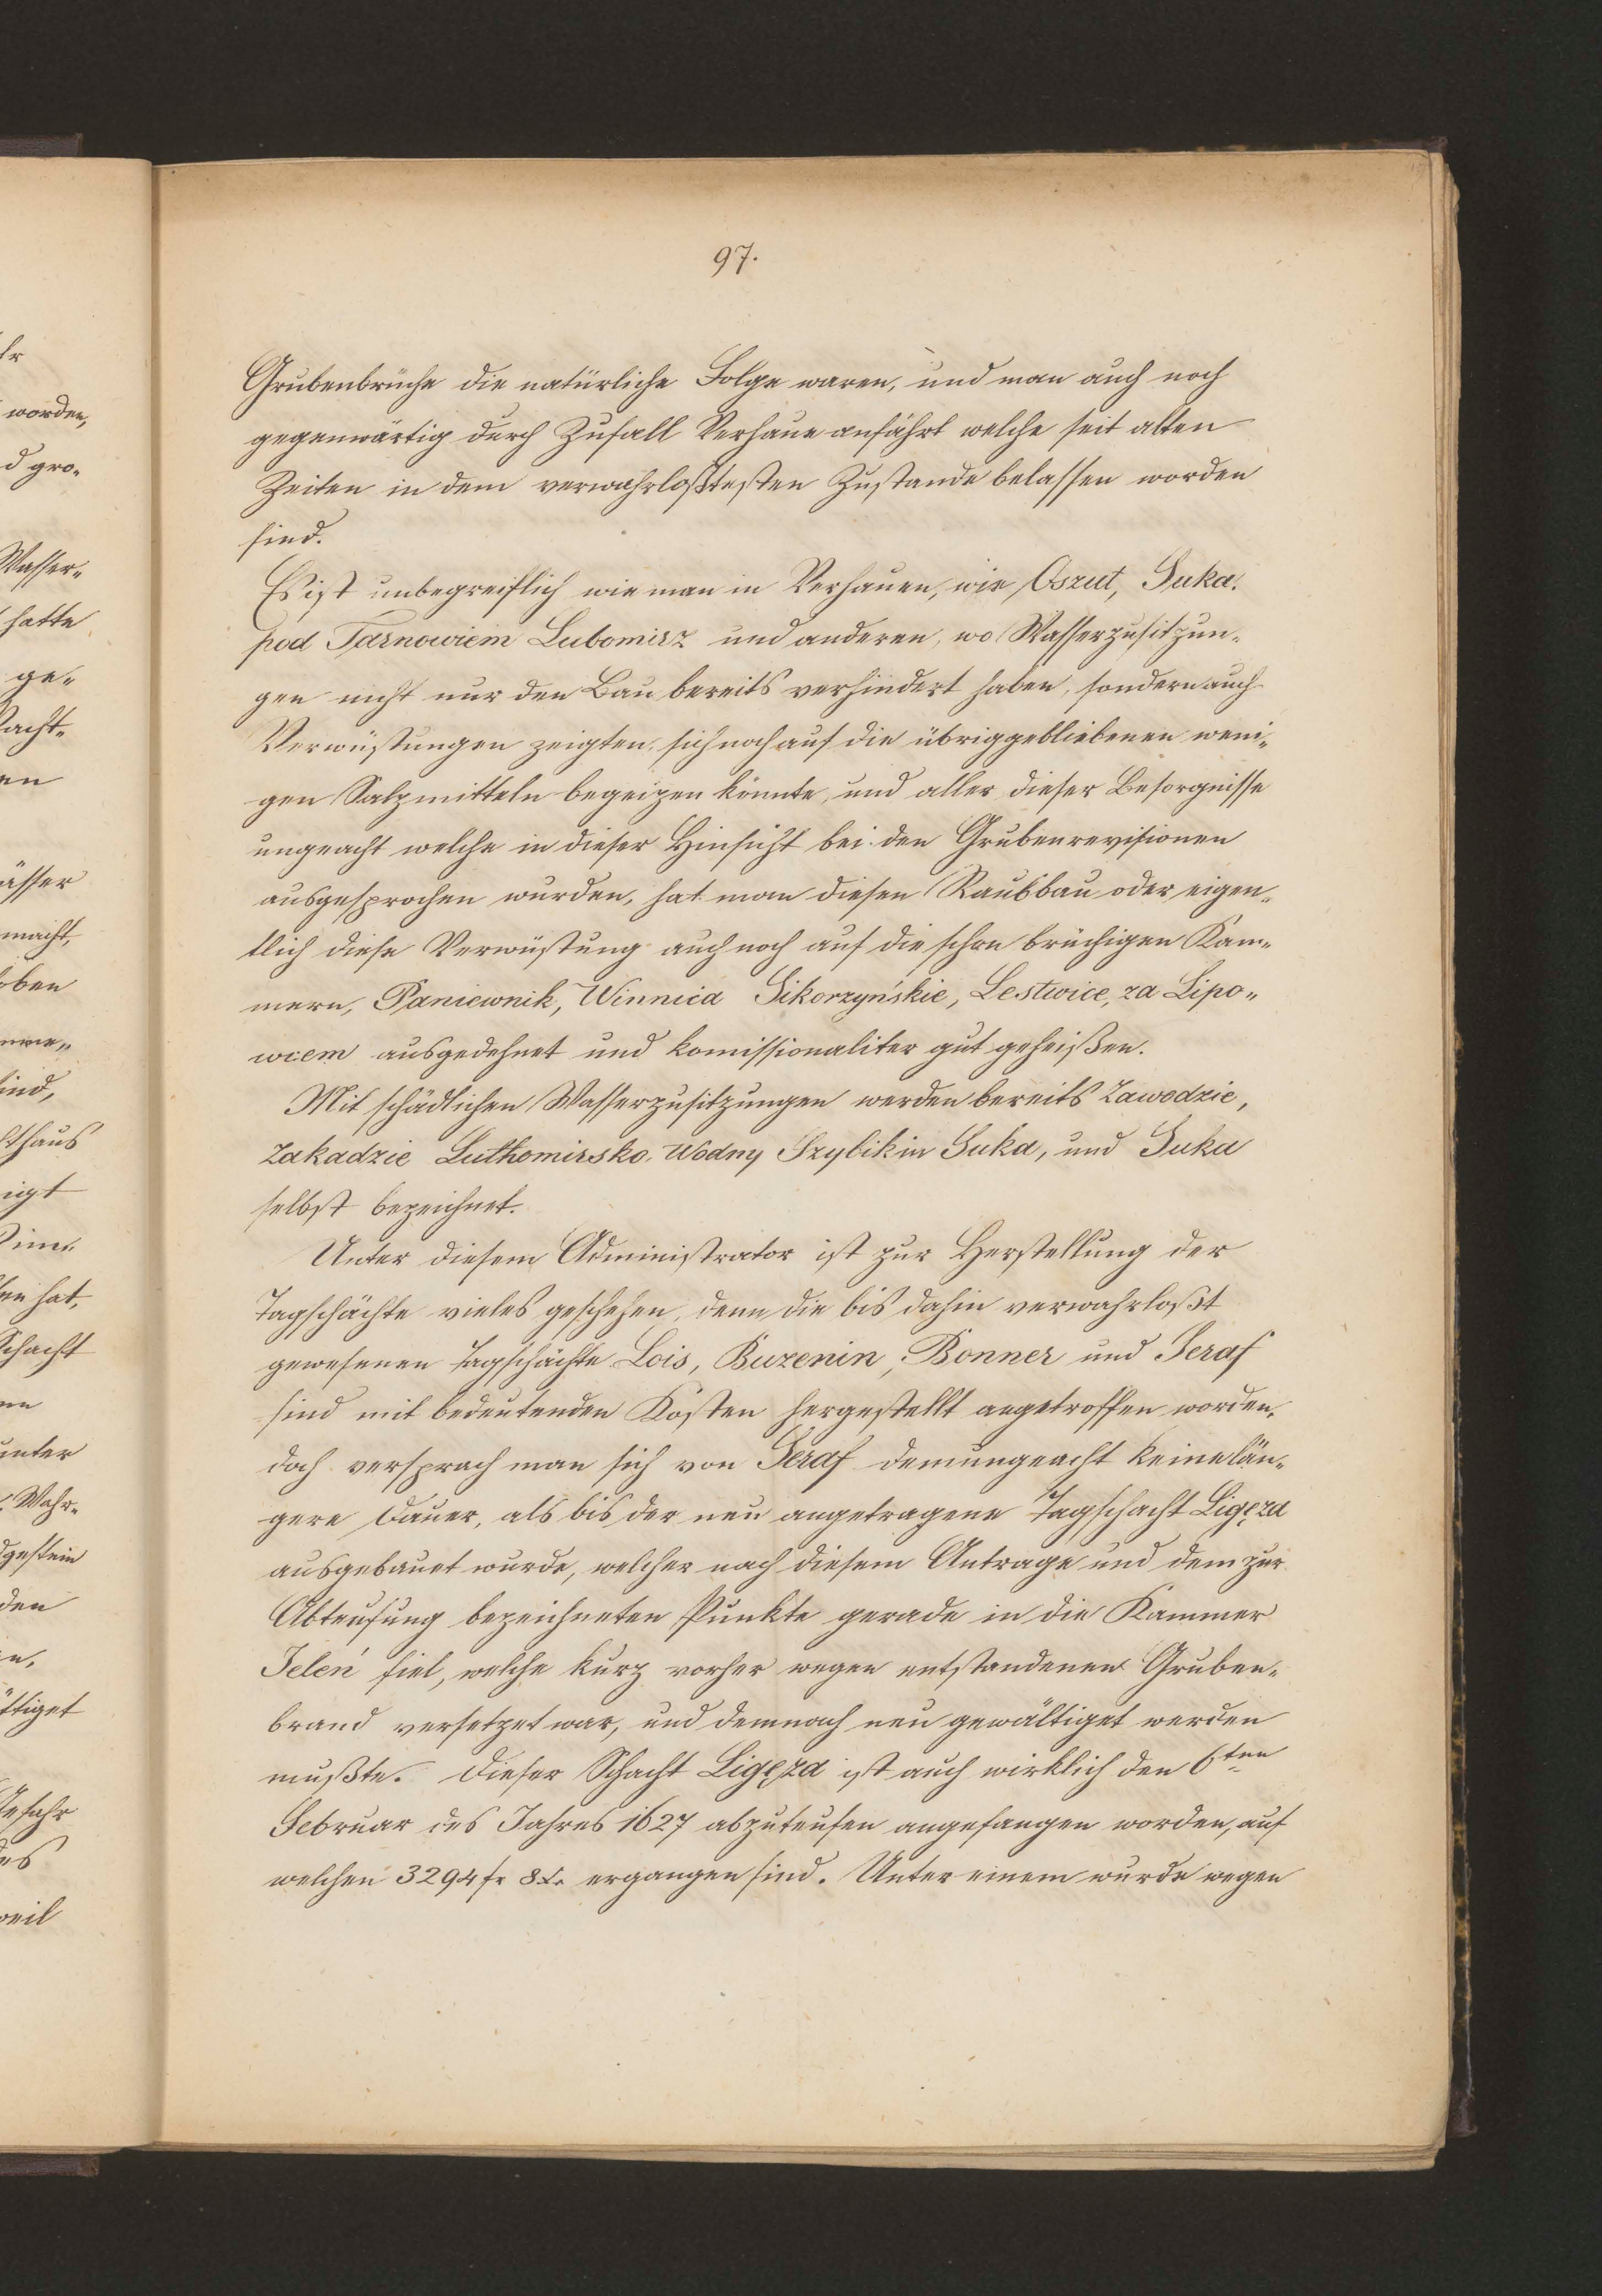 97.
Grubenbrüche die natürliche Folge waren, und man auch noch
gegenwärtig durch Zufall Verhaue anfährt welche seit alten
Zeiten in dem verwahrloßtesten Zustande belassen worden
sind.
Es ist unbegreiflich wie man in Verhauen, wie Oszut, Suka.
pod Tarnowiem Lubomirz und anderen, wo Wasserzusitzun„
gen nicht nur den Bau bereits verhindert haben, sondern auch
Verwüstungen zeigten, sich noch auf die übriggebliebenen weni„
gen Salzmitteln begeizen könnte, und aller dieser Besorgnisse
ungeacht welche in dieser Hinsicht bei den Grubenrevisionen
ausgesprochen wurden, hat man diesen Raubbau oder eigen„
tlich diese Verwüstung auch noch auf die schon brüchigen Kam„
mern, Paniewnik, Winnica Sikorzyńskie, Lestwice, za Lipo„
wcem ausgedehnt und komissionaliter gut geheißen.
Mit schädlichen Wasserzusitzungen werden bereits Zawodzie,
Zakadzie Luthomirsko, Wodny Szybik in Suka, und Suka
selbst bezeichnet.
Unter diesem Administrator ist zur Herstellung der
Tagschächte vieles geschehen, denn die bis dahin verwahrloßt
gewesenen Tagschächte Lois, Buzenin, Bonner und Seraf
sind mit bedeutenden Kosten hergestellt angetroffen worden,
doch versprach man sich von Seraf demungeacht keine län„
gere Dauer, als bis der neu angetragene Tagschacht Ligęza
ausgebauet wurde, welcher nach diesem Antrage und dem zur
Abteufung bezeichneten Punkte gerade in die Kammer
Jeleń fiel, welche kurz vorher wegen entstandenen Gruben„
brand versetzet war, und demnach neu gewältiget werden
mußte. Dieser Schacht Ligęza ist auch wirklich den 6ten
Februar des Jahres 1627 abzuteufen angefangen worden, auf
welchen 3294 fr 8 x. ergangen sind. Unter einem wurde wegen